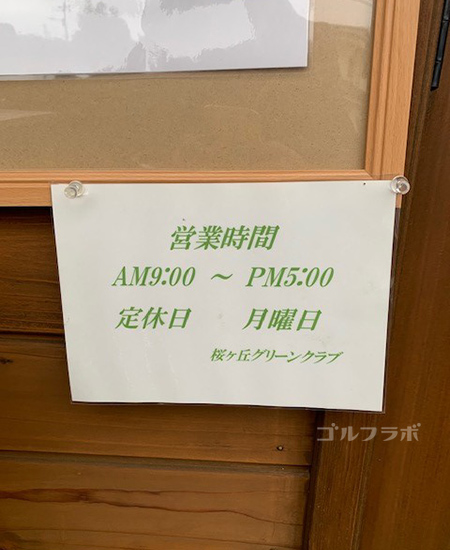 営業時間
AM9:00 ～ PM5:00
定休日　月曜日
桜ヶ丘グリーンクラブ
ゴルフラボ